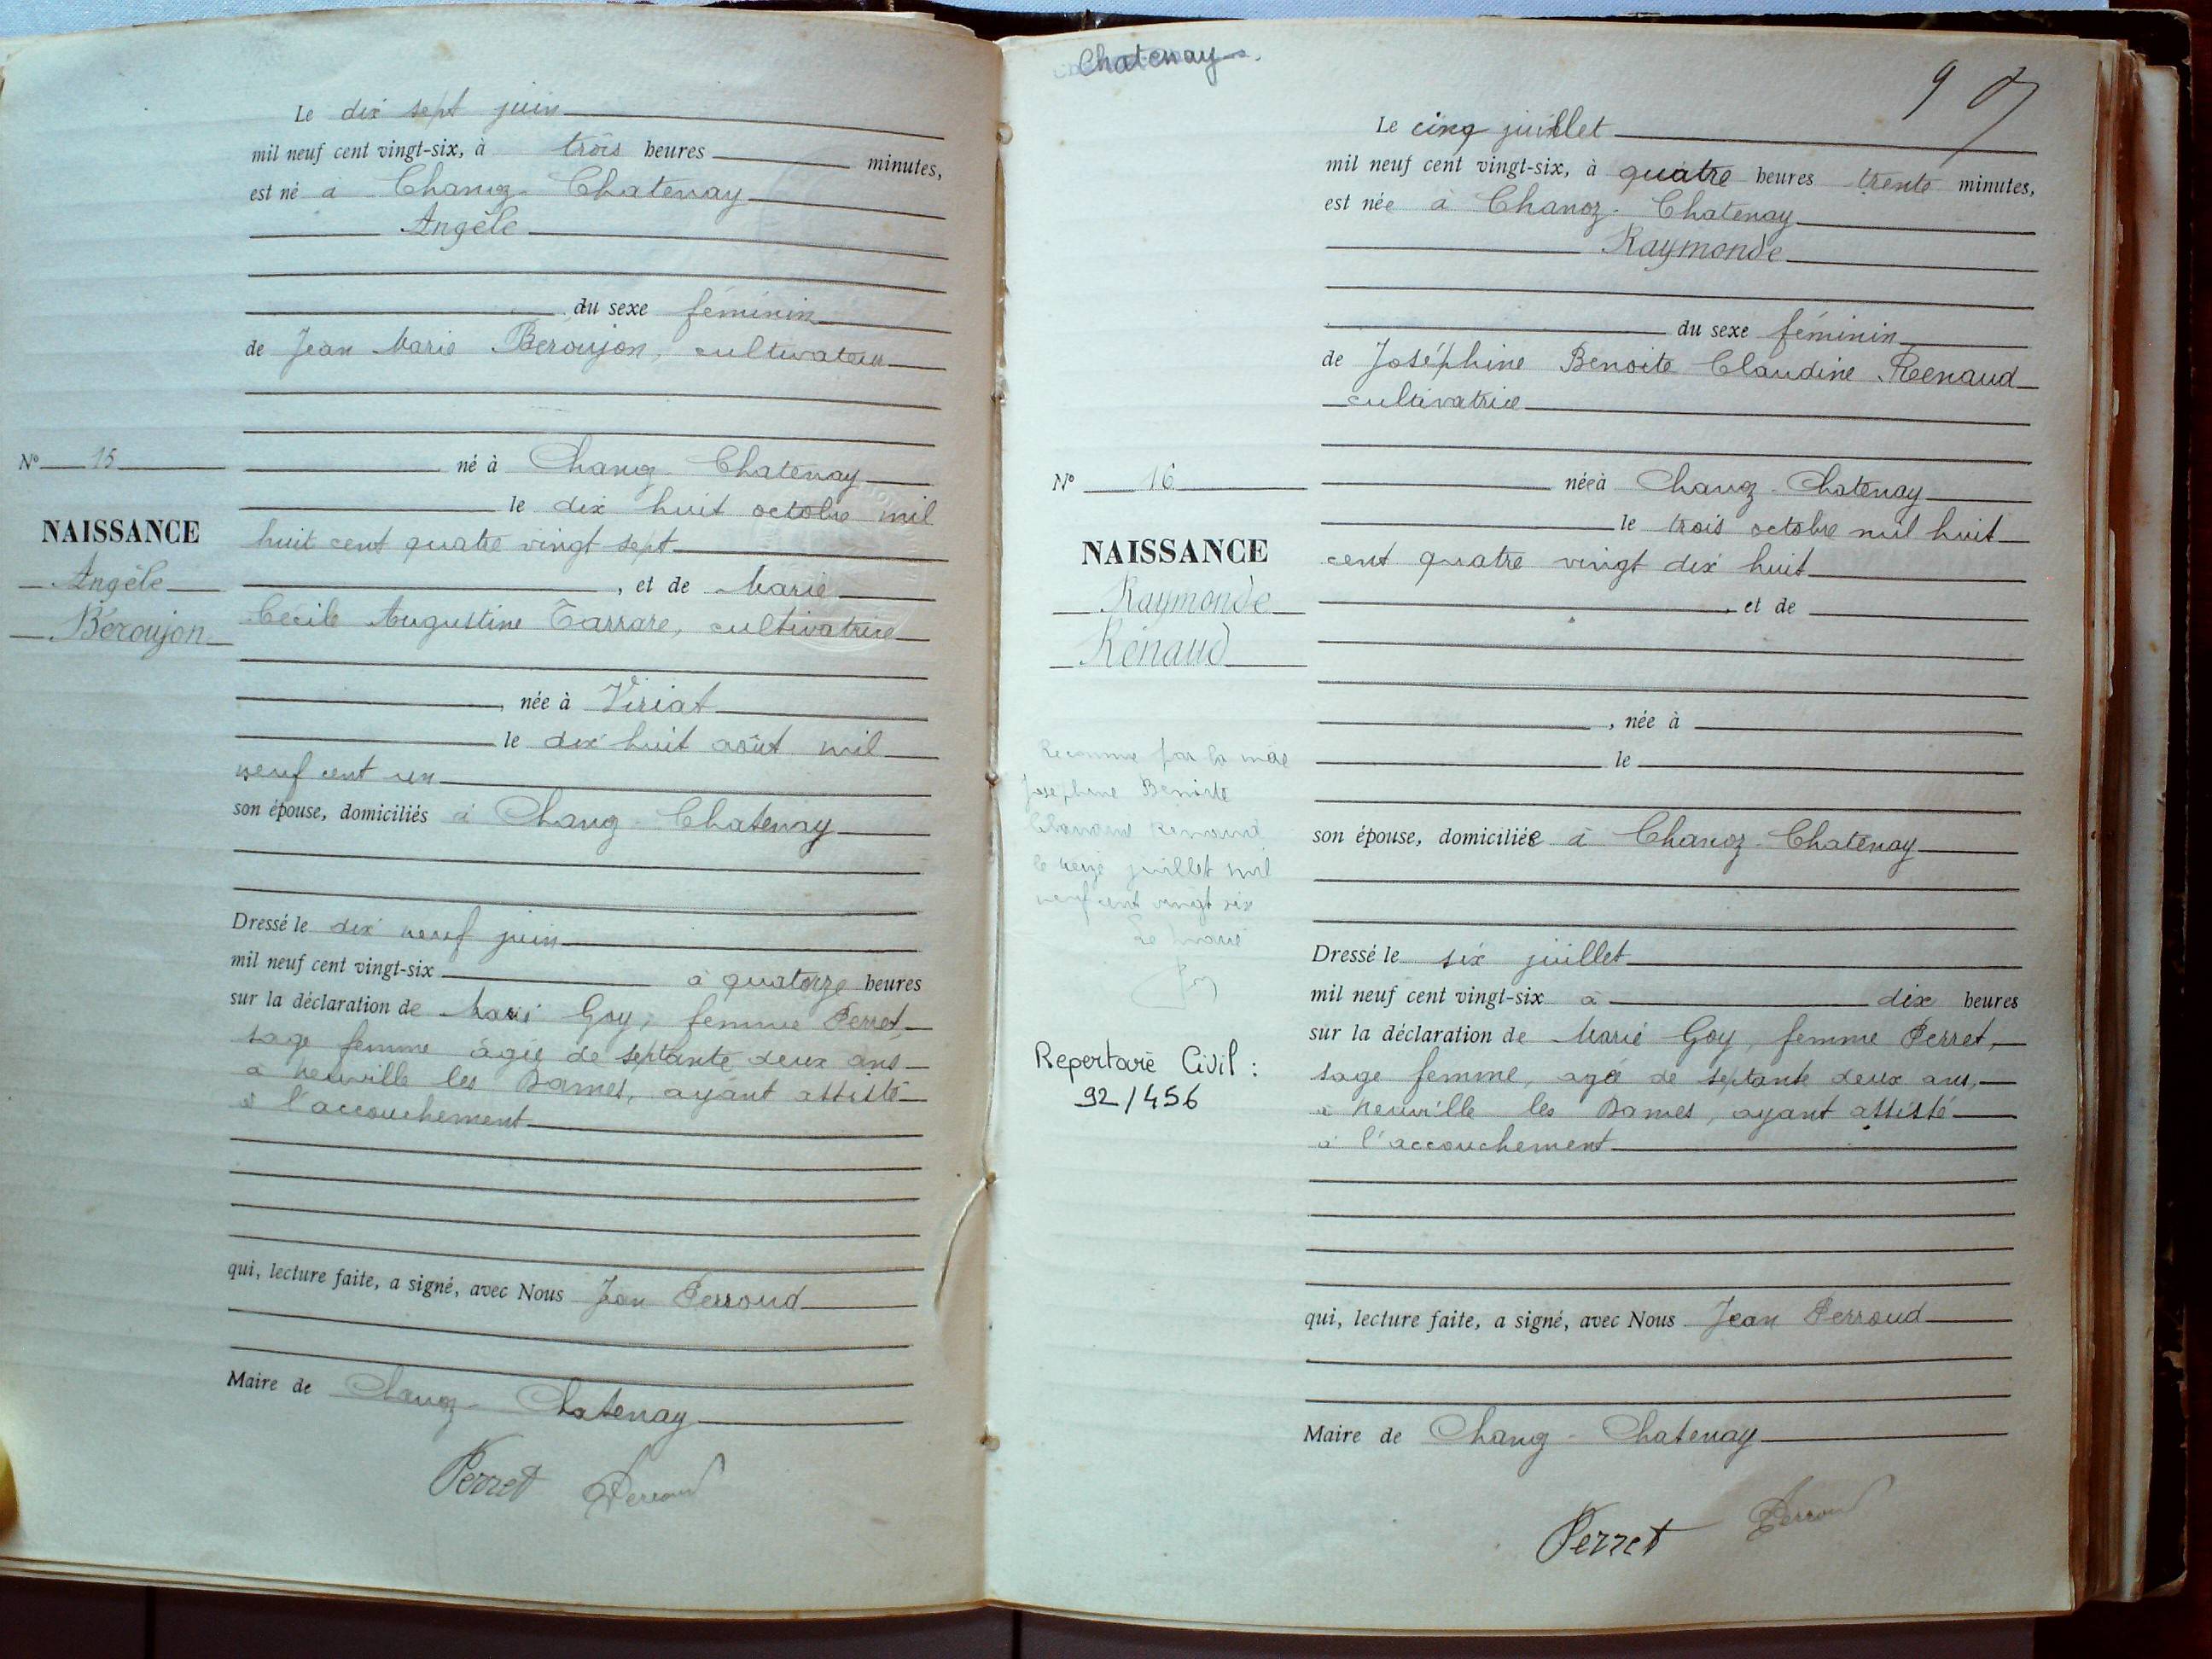 Le dix sept juin
mil neuf cent vingt-six, à trois heures minutes,
est né à Chanoz-Chatenay
Angèle
du sexe féminin
de Jean Marie Béroujon, cultivateur
né à Chanoz-Chatenay
le dix huit octobre mil
huit cent quatre vingt sept
, et de Marie
Cécile Augustine Tarrare, cultivatrice
, née à Viriat
le dix huit août mil
neuf cent un
son épouse, domiciliés à Chanoz-Chatenay
Dressé le dix neuf juin
mil neuf cent vingt-six à quatorze heures
sur la déclaration de Marie Goy, femme Perret
sage femme âgée de septante deux ans
à Neuville les Dames, ayant assisté
à l'accouchement
qui, lecture faite, a signé, avec Nous Jean Perroud
Maire de Chanoz-Chatenay
Perret Perroud
Nº 15
NAISSANCE
Angèle
Béroujon
Chatenay
9
Le cinq juillet
mil neuf cent vingt-six, à quatre heures trente minutes,
est née à Chanoz-Chatenay
Raymonde
du sexe féminin
de Joséphine Benoite Claudine Renaud
cultivatrice
née à Chanoz-Chatenay
le trois octobre mil huit
cent quatre vingt dix huit
, et de
, née à
le
son épouse, domiciliée à Chanoz-Chatenay
Dressé le six juillet
mil neuf cent vingt-six à dix heures
sur la déclaration de Marie Goy, femme Perret,
sage femme, agée de septante deux ans,
à Neuville les Dames, ayant assisté
à l'accouchement
qui, lecture faite, a signé, avec Nous Jean Perroud
Maire de Chanoz-Chatenay
Perret Perroud
Nº 16
NAISSANCE
Raymonde
Renaud
Reconnue par la mère
Joséphine Benoite
Claudine Renaud
le treize juillet mil
neuf cent vingt six
Le Maire
Repertoire Civil :
92/456